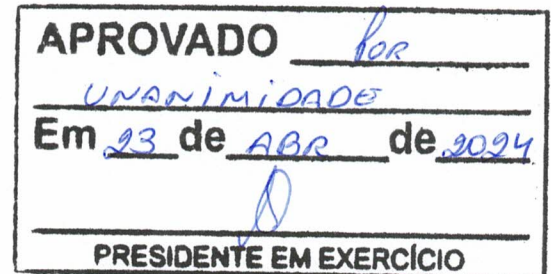 APROVADO Por
UNANIMIDADE
Em 23 de ABR de 2024
PRESIDENTE EM EXERCÍCIO